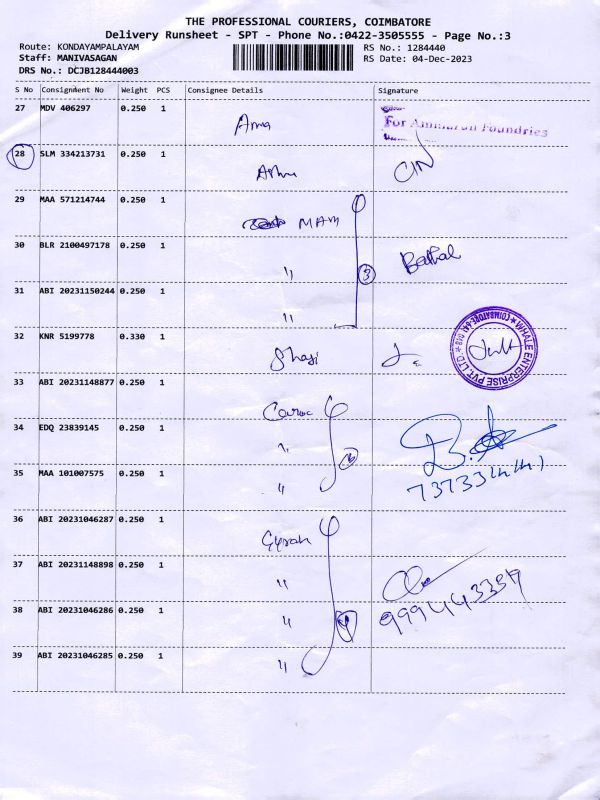 THE PROFESSIONAL COURIERS, COIMBATORE
Delivery Runsheet - SPT - Phone No.:0422-3505555 - Page No.:3
Route: KONDAYAMPALAYAM RS No.: 1284440
Staff: MANIVASAGAN RS Date: 04-Dec-2023
DRS No.: DCJB128444003
S No Consignment No Weight PCS Consignee Details Signature
27 MDV 406297 0.250 1
For Ammarun Foundries
28 SLM 334213731 0.250 1
29 MAA 571214744 0.250 1 MAM
30 BLR 2100497178 0.250 1 " 3
31 ABI 20231150244 0.250 1 "
32 KNR 5199778 0.330 1 Shaji
WHALE ENTERPRISE PVT. LTD. COIMBATORE-641 018
33 ABI 20231148877 0.250 1
34 EDQ 23839145 0.250 1 "
35 MAA 101007575 0.250 1 "
36 ABI 20231046287 0.250 1
37 ABI 20231148898 0.250 1 "
38 ABI 20231046286 0.250 1 " 4
39 ABI 20231046285 0.250 1 "